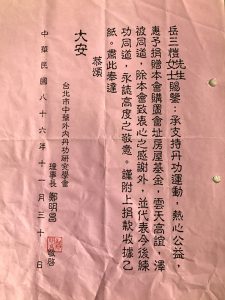 岳三橙先生女士賜鑒：承支持丹功運動，熱心公益，
惠予捐贈本會購置會址房屋基金，雲天高誼，澤
被同道，除本會致衷心之感謝外，並代表今後練
功同道，永誌高度之敬意。謹附上捐款收據乙
紙。肅此奉達
恭頌
大安
台北市中華外內丹功研究學會
理事長 鄭明昌 敬啓
中華民國八十六年十一月三十日